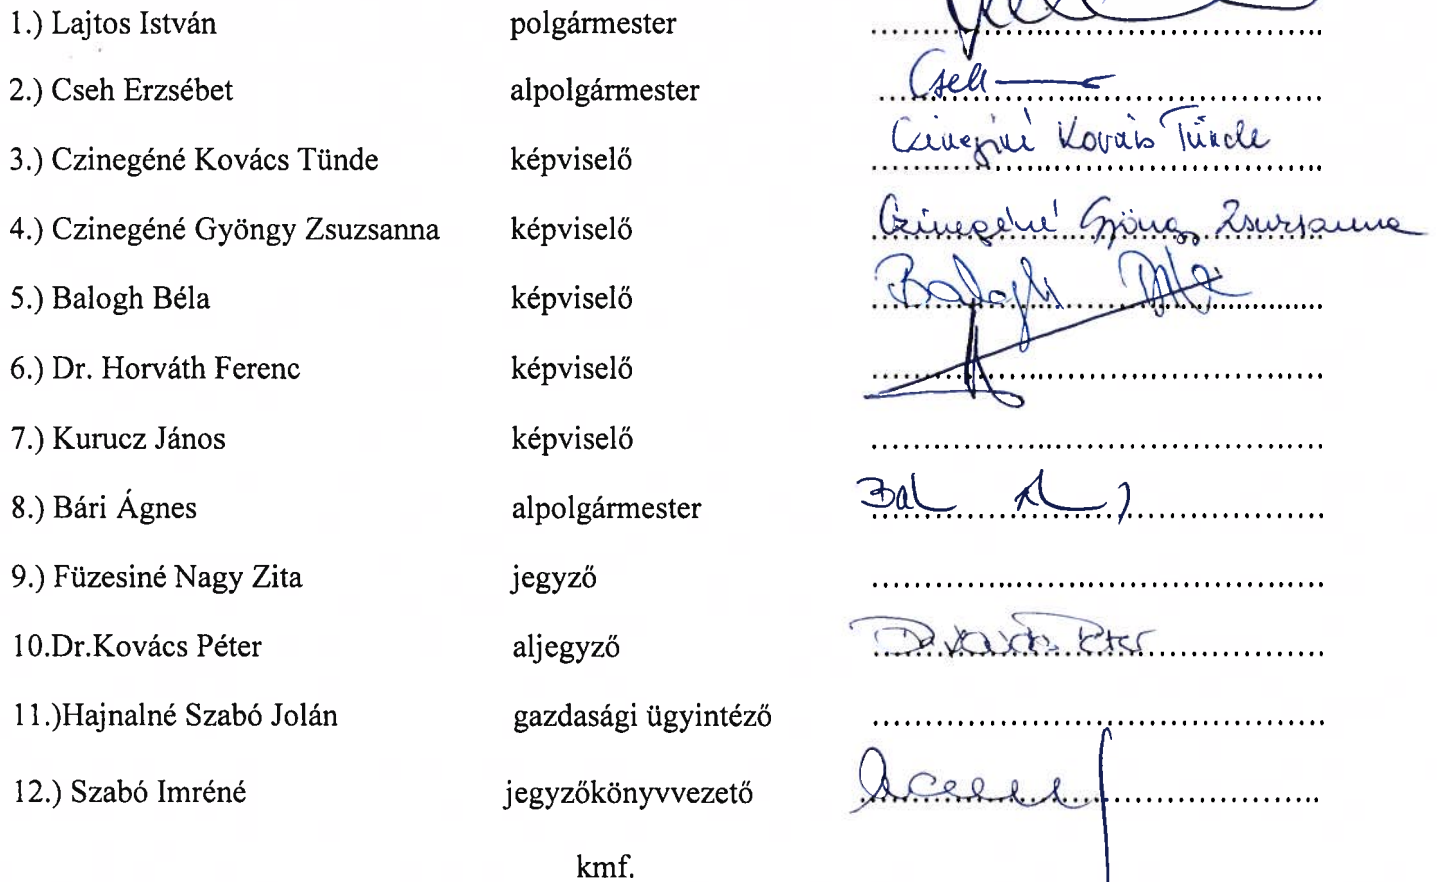 1.) Lajtos István polgármester ..........
2.) Cseh Erzsébet alpolgármester Cseh
3.) Czinegéné Kovács Tünde képviselő Czinegéné Kovács Tünde
4.) Czinegéné Gyöngy Zsuzsanna képviselő Czinegéné Gyöngy Zsuzsanna
5.) Balogh Béla képviselő Balogh Béla
6.) Dr. Horváth Ferenc képviselő ..........
7.) Kurucz János képviselő ..........
8.) Bári Ágnes alpolgármester ..........
9.) Füzesiné Nagy Zita jegyző ..........
10.Dr.Kovács Péter aljegyző Dr. Kovács Péter
11.)Hajnalné Szabó Jolán gazdasági ügyintéző ..........
12.) Szabó Imréné jegyzőkönyvvezető ..........
kmf.